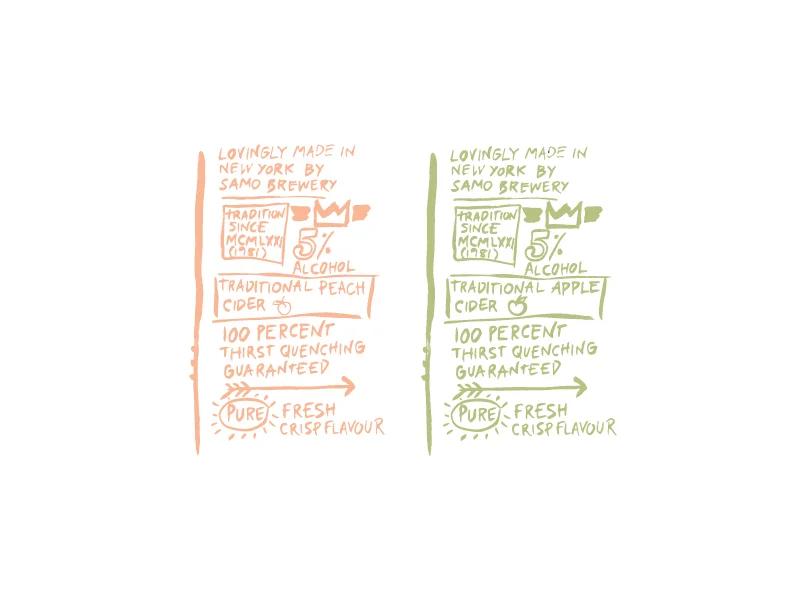 LOVINGLY MADE IN
NEW YORK BY
SAMO BREWERY
TRADITION
SINCE
MCMLXXI
(1981)
5%
ALCOHOL
TRADITIONAL PEACH
CIDER
100 PERCENT
THIRST QUENCHING
GUARANTEED
PURE
FRESH
CRISP FLAVOUR
LOVINGLY MADE IN
NEW YORK BY
SAMO BREWERY
TRADITION
SINCE
MCMLXXI
(1981)
5%
ALCOHOL
TRADITIONAL APPLE
CIDER
100 PERCENT
THIRST QUENCHING
GUARANTEED
PURE
FRESH
CRISP FLAVOUR